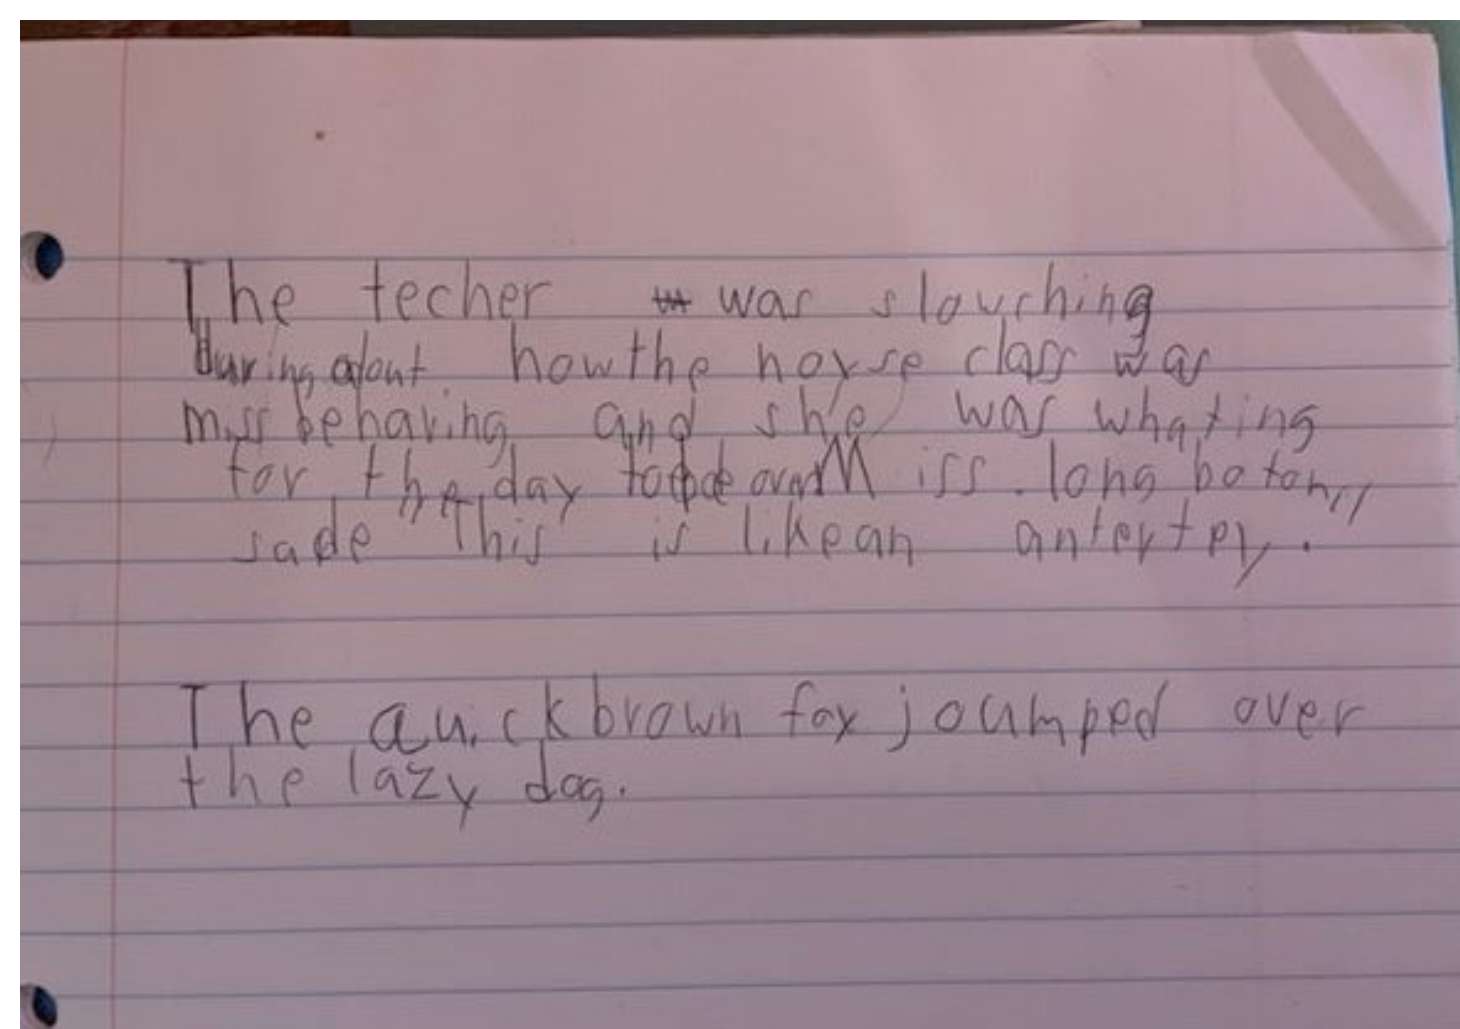 The techer was slouching
during about how the hoyse class was
missbehaving and she was whating
for the day to be over Miss. long botom,,
sade "This is like an anterter,.
The quick brown fox joumped over
the lazy dog.